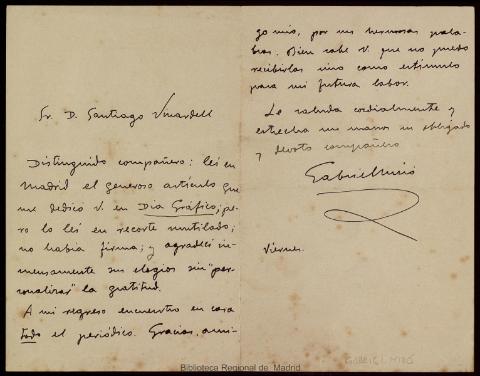 Sr. D. Santiago Vinardell
Distinguido compañero: leí en
Madrid el generoso artículo que
me dedicó V. en Día Gráfico; pe-
ro lo leí en recorte mutilado;
no había firma; y agradecí in-
mensamente sus elogios sin "per-
sonalizar" la gratitud.
A mi regreso encuentro en casa
todo el periódico. Gracias, ami-
go mío, por sus hermosas pala-
bras. Bien sabe V. que no puedo
recibirlas sino como estímulo
para mi futura labor.
Le saluda cordialmente y
estrecha sus manos su obligado
y devoto compañero
Gabriel Miró
Viernes.
GABRIEL MIRÓ
Biblioteca Regional de Madrid